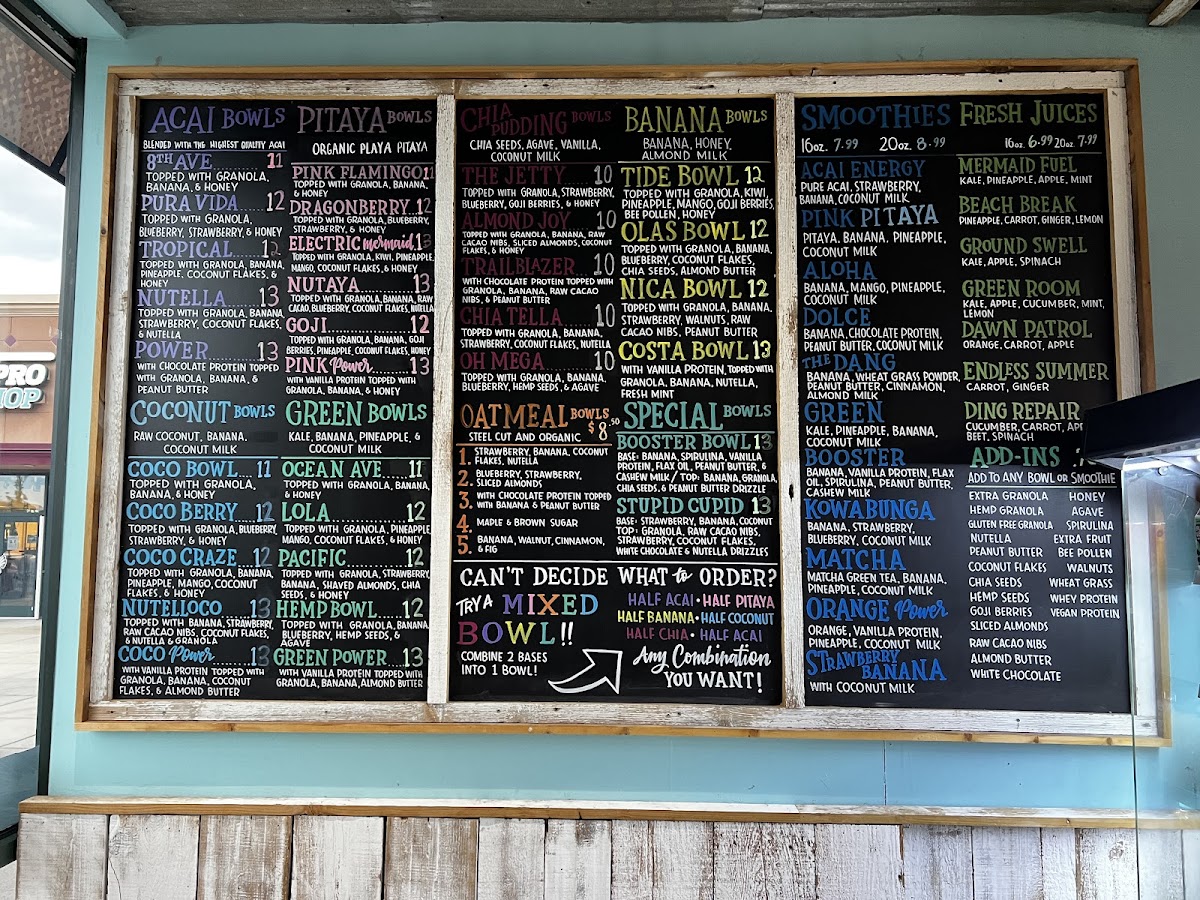 PRO
OP
ACAI BOWLS
BLENDED WITH THE HIGHEST QUALITY ACAI
8TH AVE. 11
TOPPED WITH GRANOLA,
BANANA, & HONEY
PURA VIDA 12
TOPPED WITH GRANOLA,
BLUEBERRY, STRAWBERRY, & HONEY
TROPICAL 12
TOPPED WITH GRANOLA, BANANA,
PINEAPPLE, COCONUT FLAKES, &
HONEY
NUTELLA 13
TOPPED WITH GRANOLA, BANANA,
STRAWBERRY, COCONUT FLAKES,
& NUTELLA
POWER 13
WITH CHOCOLATE PROTEIN TOPPED
WITH GRANOLA, BANANA, &
PEANUT BUTTER
COCONUT BOWLS
RAW COCONUT, BANANA,
COCONUT MILK
COCO BOWL 11
TOPPED WITH GRANOLA,
BANANA, & HONEY
COCO BERRY 12
TOPPED WITH GRANOLA, BLUEBERRY,
STRAWBERRY, & HONEY
COCO CRAZE 12
TOPPED WITH GRANOLA, BANANA,
PINEAPPLE, MANGO, COCONUT
FLAKES, & HONEY
NUTELLOCO 13
TOPPED WITH BANANA, STRAWBERRY,
RAW CACAO NIBS, COCONUT FLAKES,
& NUTELLA & GRANOLA
COCO Power 13
WITH VANILLA PROTEIN TOPPED WITH
GRANOLA, BANANA, COCONUT
FLAKES, & ALMOND BUTTER
PITAYA BOWLS
ORGANIC PLAYA PITAYA
PINK FLAMINGO 11
TOPPED WITH GRANOLA, BANANA,
& HONEY
DRAGONBERRY 12
TOPPED WITH GRANOLA, BLUEBERRY,
STRAWBERRY, & HONEY
ELECTRIC mermaid 13
TOPPED WITH GRANOLA, KIWI, PINEAPPLE,
MANGO, COCONUT FLAKES, & HONEY
NUTAYA 13
TOPPED WITH GRANOLA, BANANA, RAW
CACAO, BLUEBERRY, COCONUT FLAKES, NUTELLA
GOJI 12
TOPPED WITH GRANOLA, BANANA, GOJI
BERRIES, PINEAPPLE, COCONUT FLAKES, HONEY
PINK Power 13
WITH VANILLA PROTEIN TOPPED WITH
GRANOLA, BANANA, & HONEY
GREEN BOWLS
KALE, BANANA, PINEAPPLE, &
COCONUT MILK
OCEAN AVE. 11
TOPPED WITH GRANOLA, BANANA,
& HONEY
LOLA 12
TOPPED WITH GRANOLA, PINEAPPLE
MANGO, COCONUT FLAKES, & HONEY
PACIFIC 12
TOPPED WITH GRANOLA, STRAWBERRY,
BANANA, SHAVED ALMONDS, CHIA
SEEDS, & HONEY
HEMP BOWL 12
TOPPED WITH GRANOLA, BANANA,
BLUEBERRY, HEMP SEEDS, &
AGAVE
GREEN POWER 13
WITH VANILLA PROTEIN TOPPED WITH
GRANOLA, BANANA, ALMOND BUTTER
CHIA PUDDING BOWLS
CHIA SEEDS, AGAVE, VANILLA,
COCONUT MILK
THE JETTY 10
TOPPED WITH GRANOLA, STRAWBERRY,
BLUEBERRY, GOJI BERRIES, & HONEY
ALMOND JOY 10
TOPPED WITH GRANOLA, BANANA, RAW
CACAO NIBS, SLICED ALMONDS, COCONUT
FLAKES, & HONEY
TRAILBLAZER 10
WITH CHOCOLATE PROTEIN TOPPED WITH
GRANOLA, BANANA, RAW CACAO
NIBS, & PEANUT BUTTER
CHIA TELLA 10
TOPPED WITH GRANOLA, BANANA,
STRAWBERRY, COCONUT FLAKES, NUTELLA
OH MEGA 10
TOPPED WITH GRANOLA, BANANA,
BLUEBERRY, HEMP SEEDS, & AGAVE
OATMEAL BOWLS $8.50
STEEL CUT AND ORGANIC
1. STRAWBERRY, BANANA, COCONUT
FLAKES, NUTELLA
2. BLUEBERRY, STRAWBERRY,
SLICED ALMONDS
3. WITH CHOCOLATE PROTEIN TOPPED
WITH BANANA & PEANUT BUTTER
4. MAPLE & BROWN SUGAR
5. BANANA, WALNUT, CINNAMON,
& FIG
BANANA BOWLS
BANANA, HONEY,
ALMOND MILK
TIDE BOWL 12
TOPPED WITH GRANOLA, KIWI,
PINEAPPLE, MANGO, GOJI BERRIES,
BEE POLLEN, HONEY
OLAS BOWL 12
TOPPED WITH GRANOLA, BANANA,
BLUEBERRY, COCONUT FLAKES,
CHIA SEEDS, ALMOND BUTTER
NICA BOWL 12
TOPPED WITH GRANOLA, BANANA,
STRAWBERRY, WALNUTS, RAW
CACAO NIBS, PEANUT BUTTER
COSTA BOWL 13
WITH VANILLA PROTEIN, TOPPED WITH
GRANOLA, BANANA, NUTELLA,
FRESH MINT
SPECIAL BOWLS
BOOSTER BOWL 13
BASE: BANANA, SPIRULINA, VANILLA
PROTEIN, FLAX OIL, PEANUT BUTTER, &
CASHEW MILK / TOP: BANANA, GRANOLA,
CHIA SEEDS, & PEANUT BUTTER DRIZZLE
STUPID CUPID 13
BASE: STRAWBERRY, BANANA, COCONUT
TOP: GRANOLA, RAW CACAO NIBS,
STRAWBERRY, COCONUT FLAKES,
WHITE CHOCOLATE & NUTELLA DRIZZLES
CAN'T DECIDE WHAT to ORDER?
TRY A MIXED
BOWL!!
COMBINE 2 BASES
INTO 1 BOWL!
HALF ACAI • HALF PITAYA
HALF BANANA • HALF COCONUT
HALF CHIA • HALF ACAI
Any Combination
YOU WANT!
SMOOTHIES
16oz. 7.99 20oz. 8.99
ACAI ENERGY
PURE ACAI, STRAWBERRY,
BANANA, COCONUT MILK
PINK PITAYA
PITAYA, BANANA, PINEAPPLE,
COCONUT MILK
ALOHA
BANANA, MANGO, PINEAPPLE,
COCONUT MILK
DOLCE
BANANA, CHOCOLATE PROTEIN,
PEANUT BUTTER, COCONUT MILK
THE DANG
BANANA, WHEAT GRASS POWDER,
PEANUT BUTTER, CINNAMON,
ALMOND MILK
GREEN
KALE, PINEAPPLE, BANANA,
COCONUT MILK
BOOSTER
BANANA, VANILLA PROTEIN, FLAX
OIL, SPIRULINA, PEANUT BUTTER,
CASHEW MILK
KOWABUNGA
BANANA, STRAWBERRY,
BLUEBERRY, COCONUT MILK
MATCHA
MATCHA GREEN TEA, BANANA,
PINEAPPLE, COCONUT MILK
ORANGE Power
ORANGE, VANILLA PROTEIN,
PINEAPPLE, COCONUT MILK
STRAWBERRY
BANANA
WITH COCONUT MILK
FRESH JUICES
16oz. 6.99 20oz. 7.99
MERMAID FUEL
KALE, PINEAPPLE, APPLE, MINT
BEACH BREAK
PINEAPPLE, CARROT, GINGER, LEMON
GROUND SWELL
KALE, APPLE, SPINACH
GREEN ROOM
KALE, APPLE, CUCUMBER, MINT,
LEMON
DAWN PATROL
ORANGE, CARROT, APPLE
ENDLESS SUMMER
CARROT, GINGER
DING REPAIR
CUCUMBER, CARROT, AP
BEET, SPINACH
ADD-INS
ADD TO ANY BOWL OR SMOOTHIE
EXTRA GRANOLA
HEMP GRANOLA
GLUTEN FREE GRANOLA
NUTELLA
PEANUT BUTTER
COCONUT FLAKES
CHIA SEEDS
HEMP SEEDS
GOJI BERRIES
SLICED ALMONDS
RAW CACAO NIBS
ALMOND BUTTER
WHITE CHOCOLATE
HONEY
AGAVE
SPIRULINA
EXTRA FRUIT
BEE POLLEN
WALNUTS
WHEAT GRASS
WHEY PROTEIN
VEGAN PROTEIN